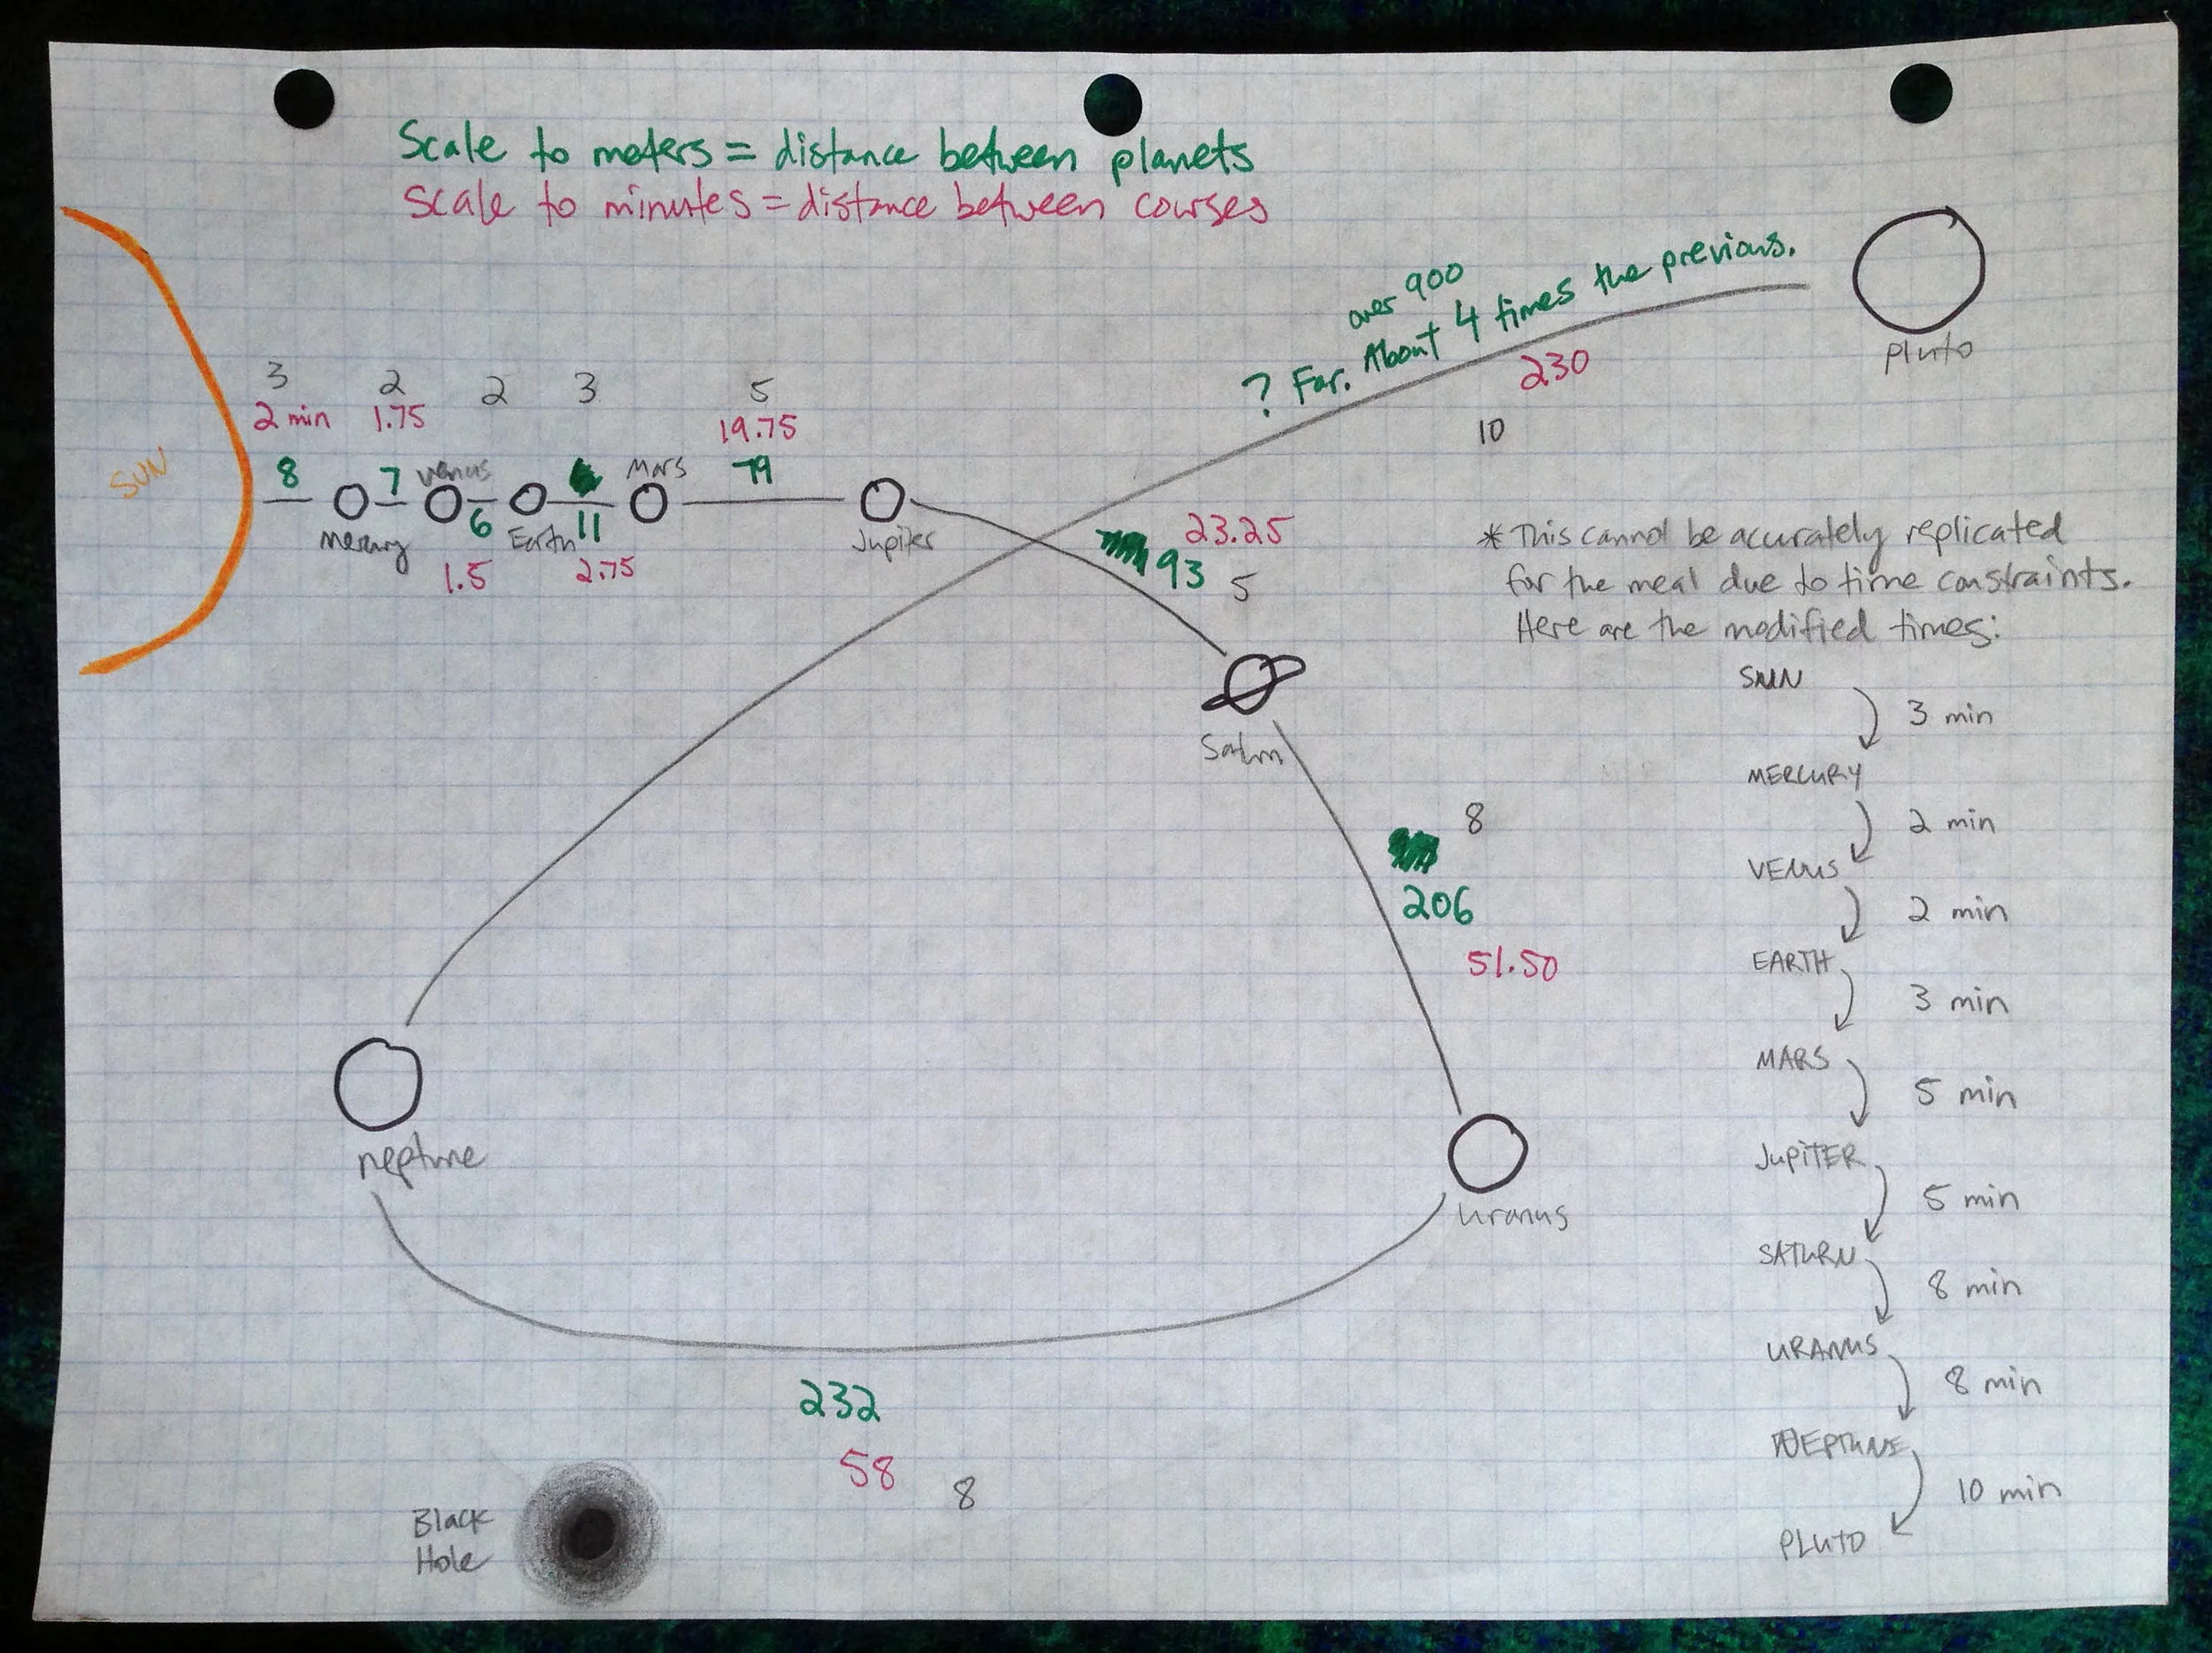 Scale to meters = distance between planets
Scale to minutes = distance between courses
over 900
? Far. About 4 times the previous.
230
10
Pluto
3 2 2 3 5
2 min 1.75 19.75
SUN
8 7 Venus Mars 79
Mercury 6 Earth 11 Jupiter
1.5 2.75
23.25
93
5
Saturn
8
206
51.50
neptune
uranus
232
58
8
Black
Hole
* This cannot be accurately replicated
for the meal due to time constraints.
Here are the modified times:
SUN
3 min
MERCURY
2 min
VENUS
2 min
EARTH
3 min
MARS
5 min
JUPITER
5 min
SATURN
8 min
URANUS
8 min
NEPTUNE
10 min
PLUTO